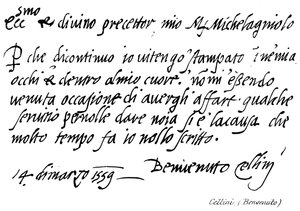 Ecc^smo & divino precettor mio M. Michelagniolo
P che dicontinuo io vitengo stampato i nemia
occhi & dentro almio cuore. nonmi essendo
venuta occasione di avergli affare qualche
servitio penolle dare noia si e lacausa che
molto tempo fa io nollo scritto.
14 dimarzo 1559 Benvenuto Cellini
Cellini (Benvenuto)